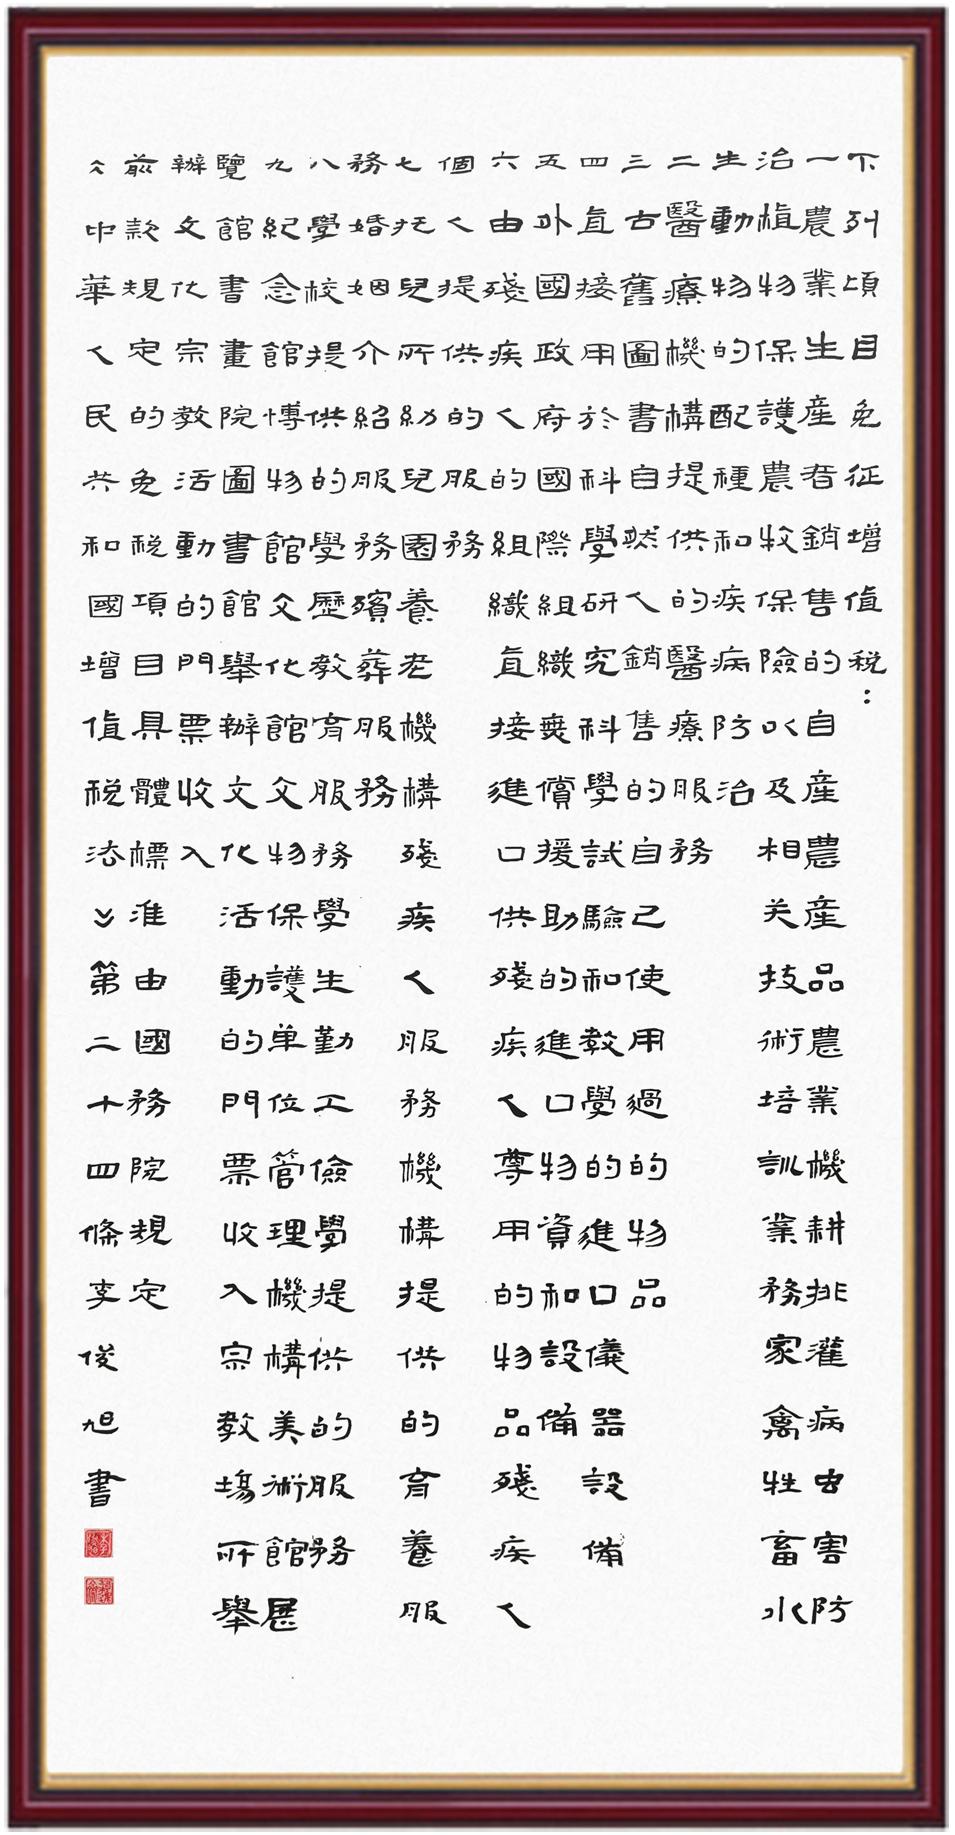 下列項目免征增值税：
一農業生産者銷售的自産農産品農業機耕排灌病虫害防
治植物保護農牧保險以及相关技術培訓業務家禽牲畜水
生動物的配種和疾病防治
二醫療機構提供的醫療服務
三古舊圖書自然人銷售的自己使用過的物品
四直接用於科學研究科學試驗和教學的進口儀器設備
五外國政府國際組織無償援助的進口物資和設備
六由殘疾人的組織直接進口供殘疾人尊用的物品殘疾人
個人提供的服務
七托兒所幼兒園養老機構殘疾人服務機構提供的育養服
務婚姻介紹服務殯葬服務
八學校提供的學歷教育服務學生勤工儉學提供的服務
九紀念館博物館文化館文物保護单位管理機構美術館展
覽館書畫院圖書館舉辦文化活動的門票收入宗教場所舉
辦文化宗教活動的門票收入
前款規定的免税項目具體標准由國務院規定
《中華人民共和國增值税法》第二十四條李俊旭書